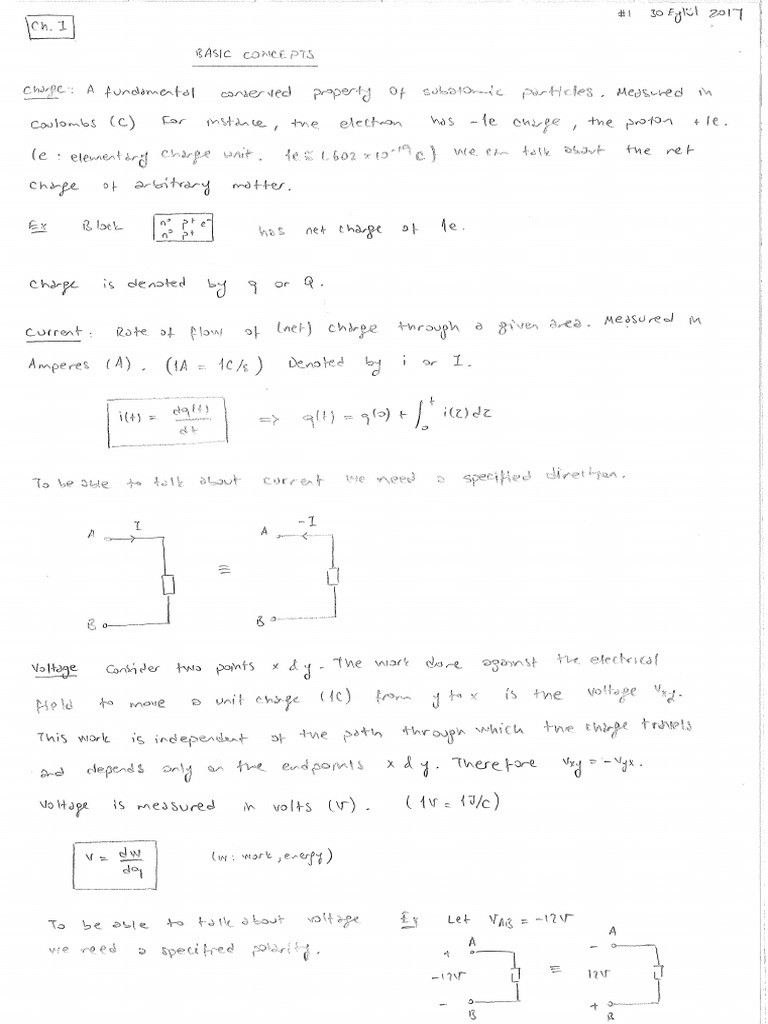 Ch. 1
#1 30 Eylül 2017
BASIC CONCEPTS
Charge: A fundamental conserved property of subatomic particles. Measured in
Coulombs (C) For instance, the electron has -1e charge, the proton +1e.
(e: elementary charge unit. 1e ≅ 1.602 × 10⁻¹⁹ C) We can talk about the net
charge of arbitrary matter.
Ex Block n° p+ e- n° p+ has net charge of 1e.
Charge is denoted by q or Q.
Current: Rate of flow of (net) charge through a given area. Measured in
Amperes (A). (1A = 1C/s) Denoted by i or I.
i(t) = dq(t)/dt => q(t) = q(0) + ∫₀ᵗ i(τ)dτ
To be able to talk about current we need a specified direction.
A I A -I
≡
B B
Voltage Consider two points x & y. The work done against the electrical
field to move a unit charge (1C) from y to x is the voltage Vxy.
This work is independent of the path through which the charge travels
and depends only on the endpoints x & y. Therefore Vxy = -Vyx.
Voltage is measured in volts (V). (1V = 1J/C)
V = dw/dq (w: work, energy)
To be able to talk about voltage
we need a specified polarity.
Ex Let VAB = -12V
A A
+ -
-12V ≡ 12V
- +
B B